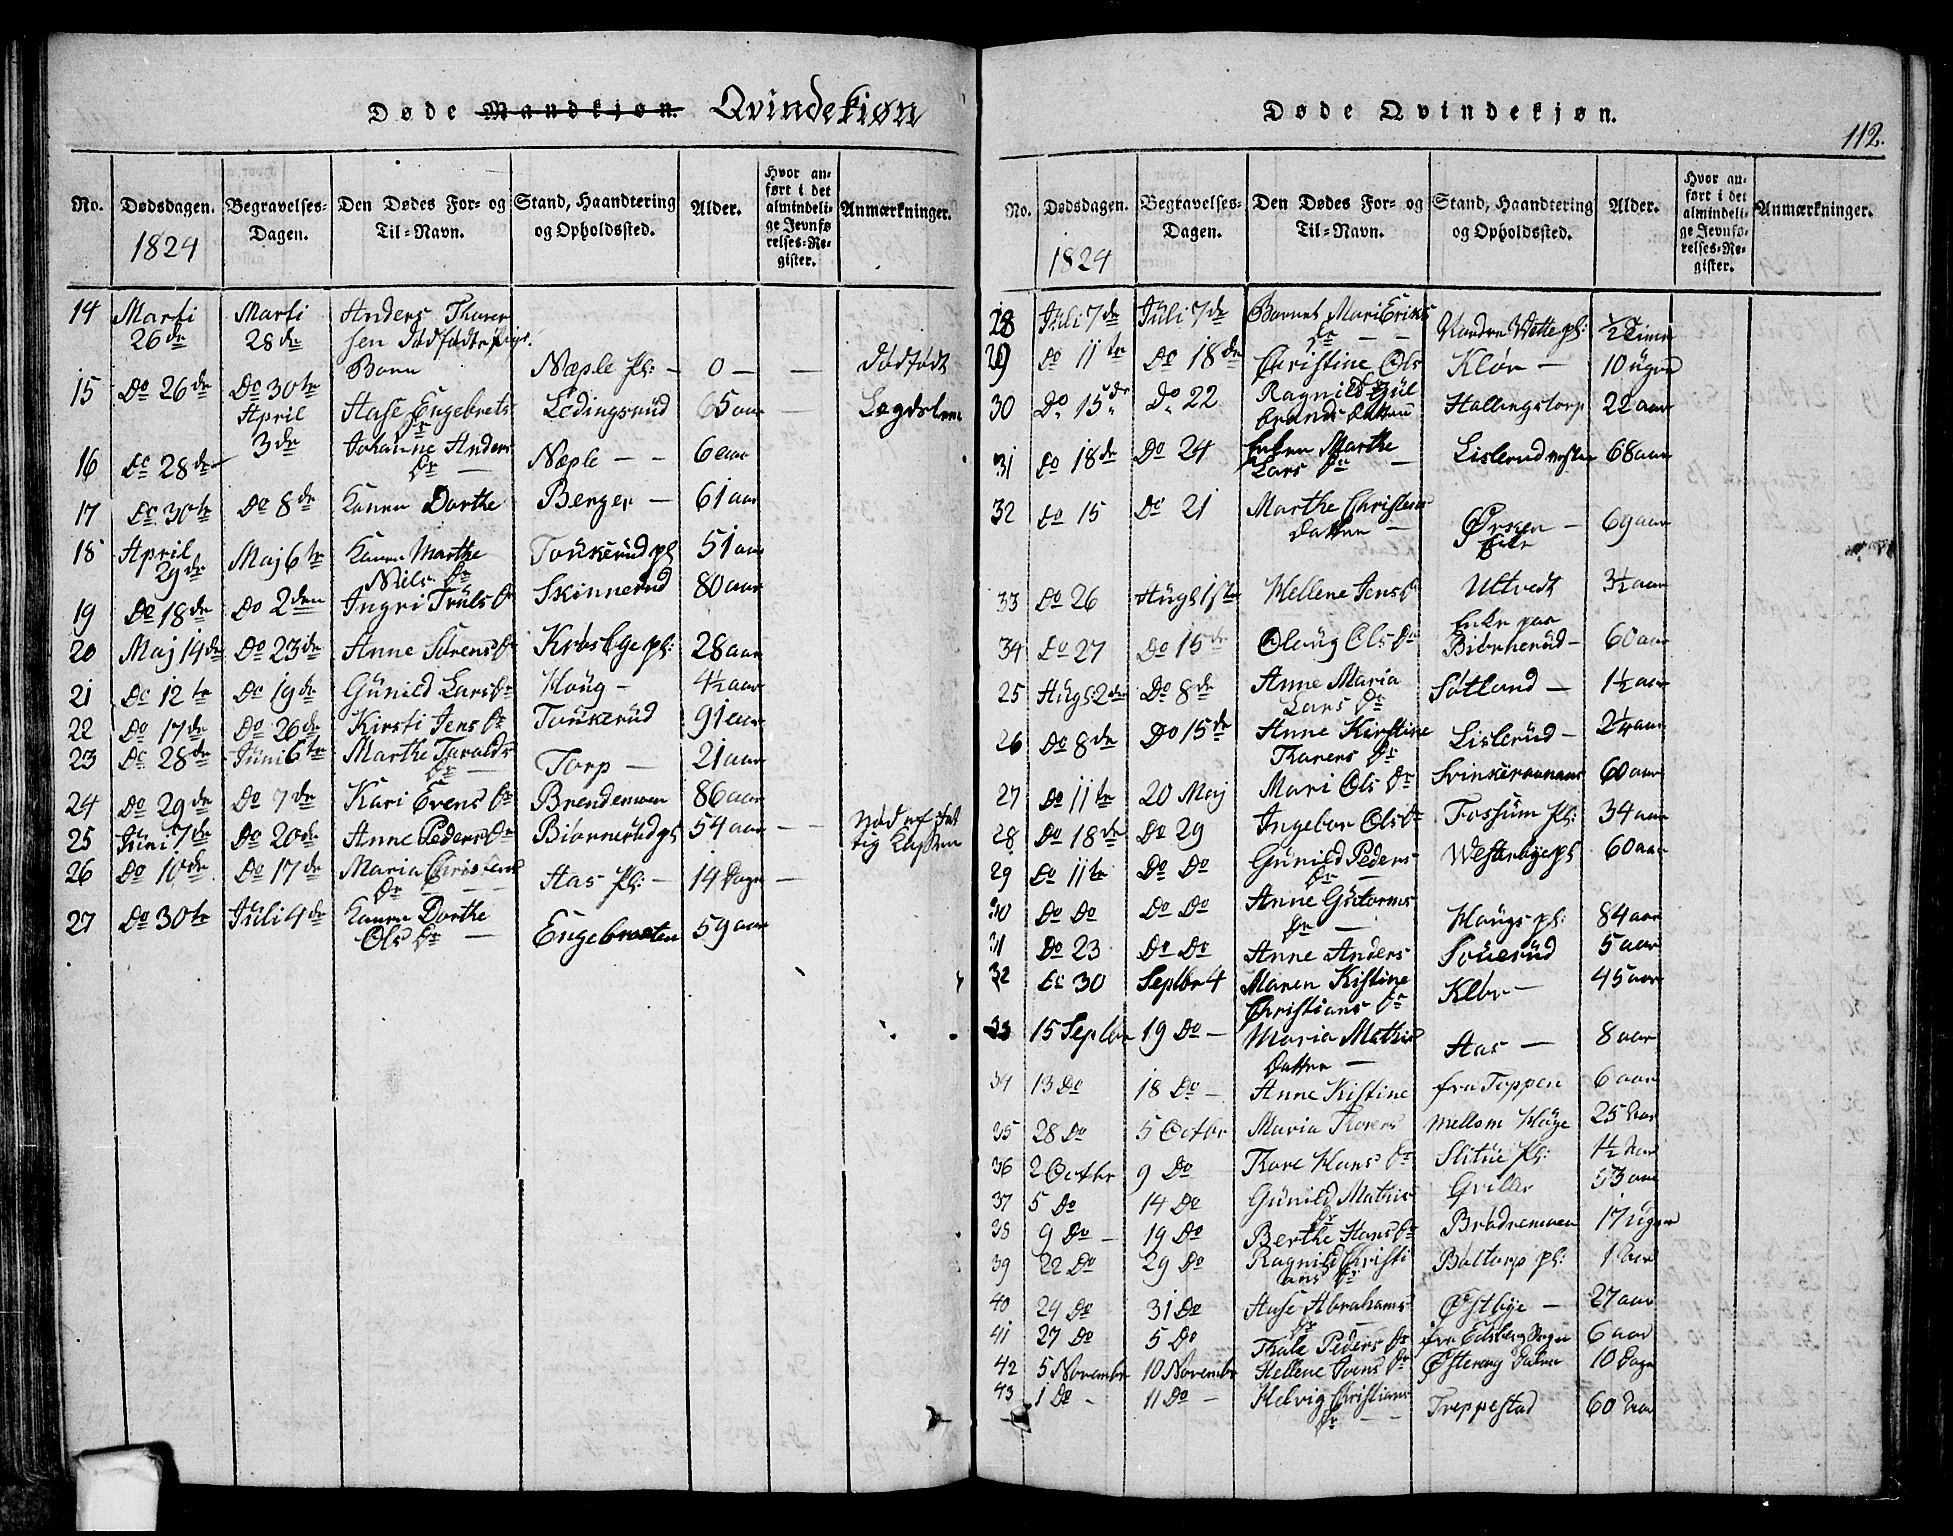 Døde Mandkjøn. Qvindekiøn
No. Dødsdagen. 1824 Begravelses-Dagen. Den Dødes For- og Til-Navn. Stand, Haandtering og Opholdssted. Alder. Hvor anført i det almindelige Jevnførelses-Register. Anmærkninger.
14 Marti 26de Marti 28de Anders Thorer
sen dødfødte Pige
Barn Næple Pl: - 0 - - dødfødt
15 Do 26de Do 30te Aase Engebrets Dr Ledingsrud 65 aar - Legdslem
16 Do 28de April 3de Johanne Anders Dr - Næple - - 6 aar
17 Do 30te Do 8de Karen Dorthe Berger - 61 aar
18 April 29de Maj 6te Karen Marthe Niels Dr Touserud pl 51 aar
19 Do 18de Do 2den Ingri Truls Dr Skinnerud 80 aar
20 Maj 14de Do 23de Anne Sørens Dr Krosbye pl: 28 aar
21 Do 12te Do 19de Gunild Lars Dr Houg - 4½ aar
22 Do 17de Do 26de Kirsti Jens Dr Touserud 91 aar
23 Do 28de Juni 6te Marthe Taralds Dr - Torp - 21 aar
24 Do 29de Do 7de Kari Evens Dr Brendemoen 86 aar
25 Juni 7de Do 20de Anne Peders Dr Biørnerud pl 54 aar - - nød af fat
tig Cassen
26 Do 10de Do 17de Maria Christens Dr Aas Pl: - 14 Dage -
27 Do 30te Juli 4de Karen Dorthe
Ols Dr - Engebraaten 59 aar
Døde Qvindekjøn.
112.
No. Dødsdagen. 1824 Begravelses-Dagen. Den Dødes For- og Til-Navn. Stand, Haandtering og Opholdssted. Alder. Hvor anført i det almindelige Jevnførelses-Register. Anmærkninger.
28 Juli 7de Juli 7de Barnet Mari Eriks
Dr - - pl: ½ Time
29 Do 11te Do 18de Christine Ols Dr Klør - 10 uger
30 Do 15de Do 22 Ragnild Gul
brands Datter Hallingstorp 22 aar
31 Do 18de Do 24 Enken Marthe
Lars Dr - Lislerud 68 aar
32 Do 15 Do 21 Marthe Christens
Datter - Ørsen - 69 aar
33 Do 26 Augs 1ste Hellene Jens Dr Ultvedt 3½ aar
34 Do 27 Do 15de Oloug Ols Dr Enke paa
Biørnerud - 60 aar
25 Augs: 2den Do 8de Anne Maria
Lars Dr Søtland - 1½ aar
26 Do 8de Do 15de Anne Kirstine
Thorers Dr Lislerud - 2¼ aar
27 Do 11te 20 Maj Mari Ols Dr 60 aar
28 Do 18de Do 29 Ingebor Ols Dr Fossum Pl: 34 aar
29 Do 11te Do Do Gunild Peders
Dr - Westerbye pl 60 aar
30 Do Do Do Do Anne Gutorms
Dr - Hougs pl: 84 aar
31 Do 23 Do Do Anne Anders Souerud 5 aar
32 Do 30 Septbr 4 Maren Kistine
Christians Dr Klør - 45 aar
33 15 Septbr 19 Do - Maria Mathis
Datter - Aas - 8 aar
34 13 Do 18 Do - Anne Kistine fra Toppen 6 aar
35 28 Do 5 Octbr Maria Thorers mellom Houge 25 aar
36 2 Octbr 9 Do Thore Hans Dr Slitue Pl: 1½ aar
37 5 Do 14 Do Gunild Mathis Dr Griller 53 aar
38 9 Do - 19 Do Berthe Hans Dr Brødremoen 17 uger
39 22 Do 29 Do Ragnild Christi
ans Dr Boltorp pl: 1 aar
40 24 Do 31 Do Aase Abrahams
Dr - Østbye - 27 aar
41 27 Do 5 Do Thale Peders Dr fra Edsberg Sogn 6 aar
42 5 Novembr 10 Novembr Hellene Ivers Dr 10 Dage
43 1 Do - 11 Do - Helvig Christians
Dr - - Treppestad 60 aar